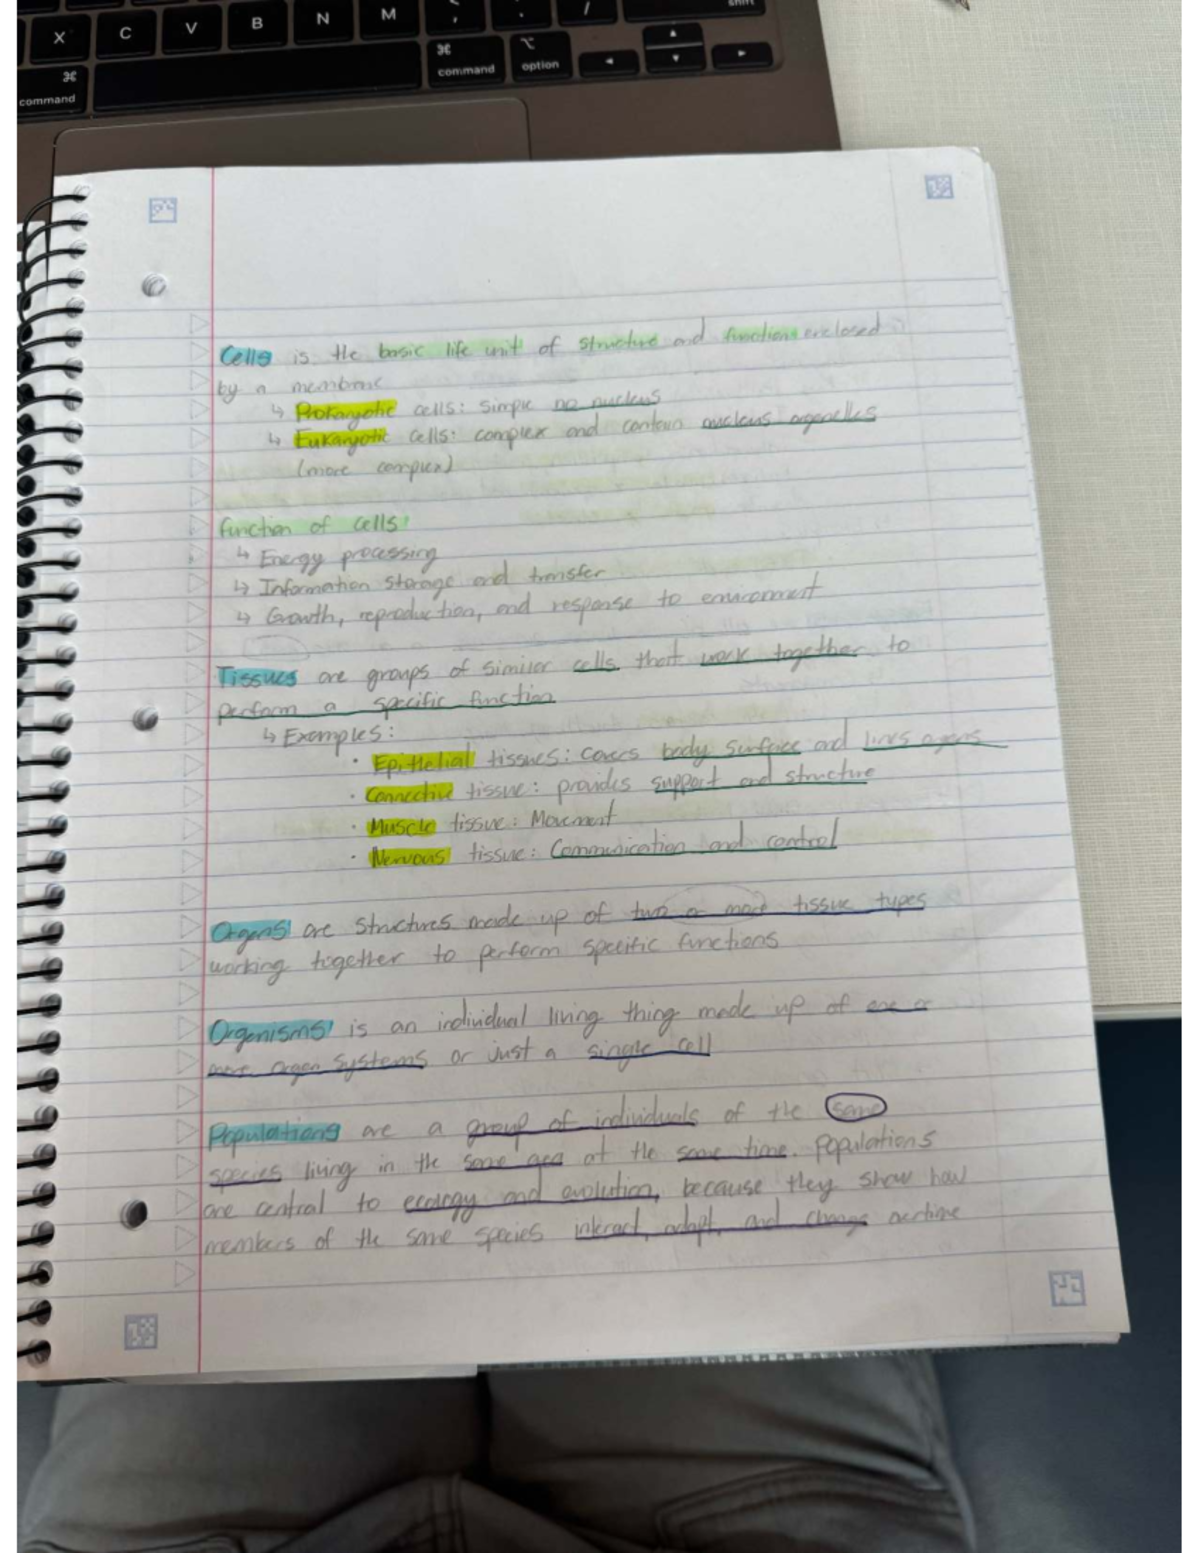 X C V B N M , . / shift
command ⌘ ⌘ command ⌥ option ◀ ▲ ▼ ▶
Cells is the basic life unit of structure and function enclosed
by a membrane
↳ Prokaryotic cells: simple no nucleus
↳ Eukaryotic cells: complex and contain nucleus organelles
(more complex)
function of cells:
↳ Energy processing
↳ Information storage and transfer
↳ Growth, reproduction, and response to enviornment
Tissues are groups of similar cells that work together to
perform a specific function
↳ Examples:
· Epithelial tissues: covers body surface and lines organs
· Connective tissue: provides support and structure
· Muscle tissue: Movement
· Nervous tissue: Communication and control
Organs are structures made up of two or more tissue types
working together to perform specific functions
Organisms is an individual living thing made up of one or
more organ systems or just a single cell
Populations are a group of individuals of the same
species living in the same area at the same time. Populations
are central to and evolution, because they show how
members of the same species interact, adapt, and change overtime